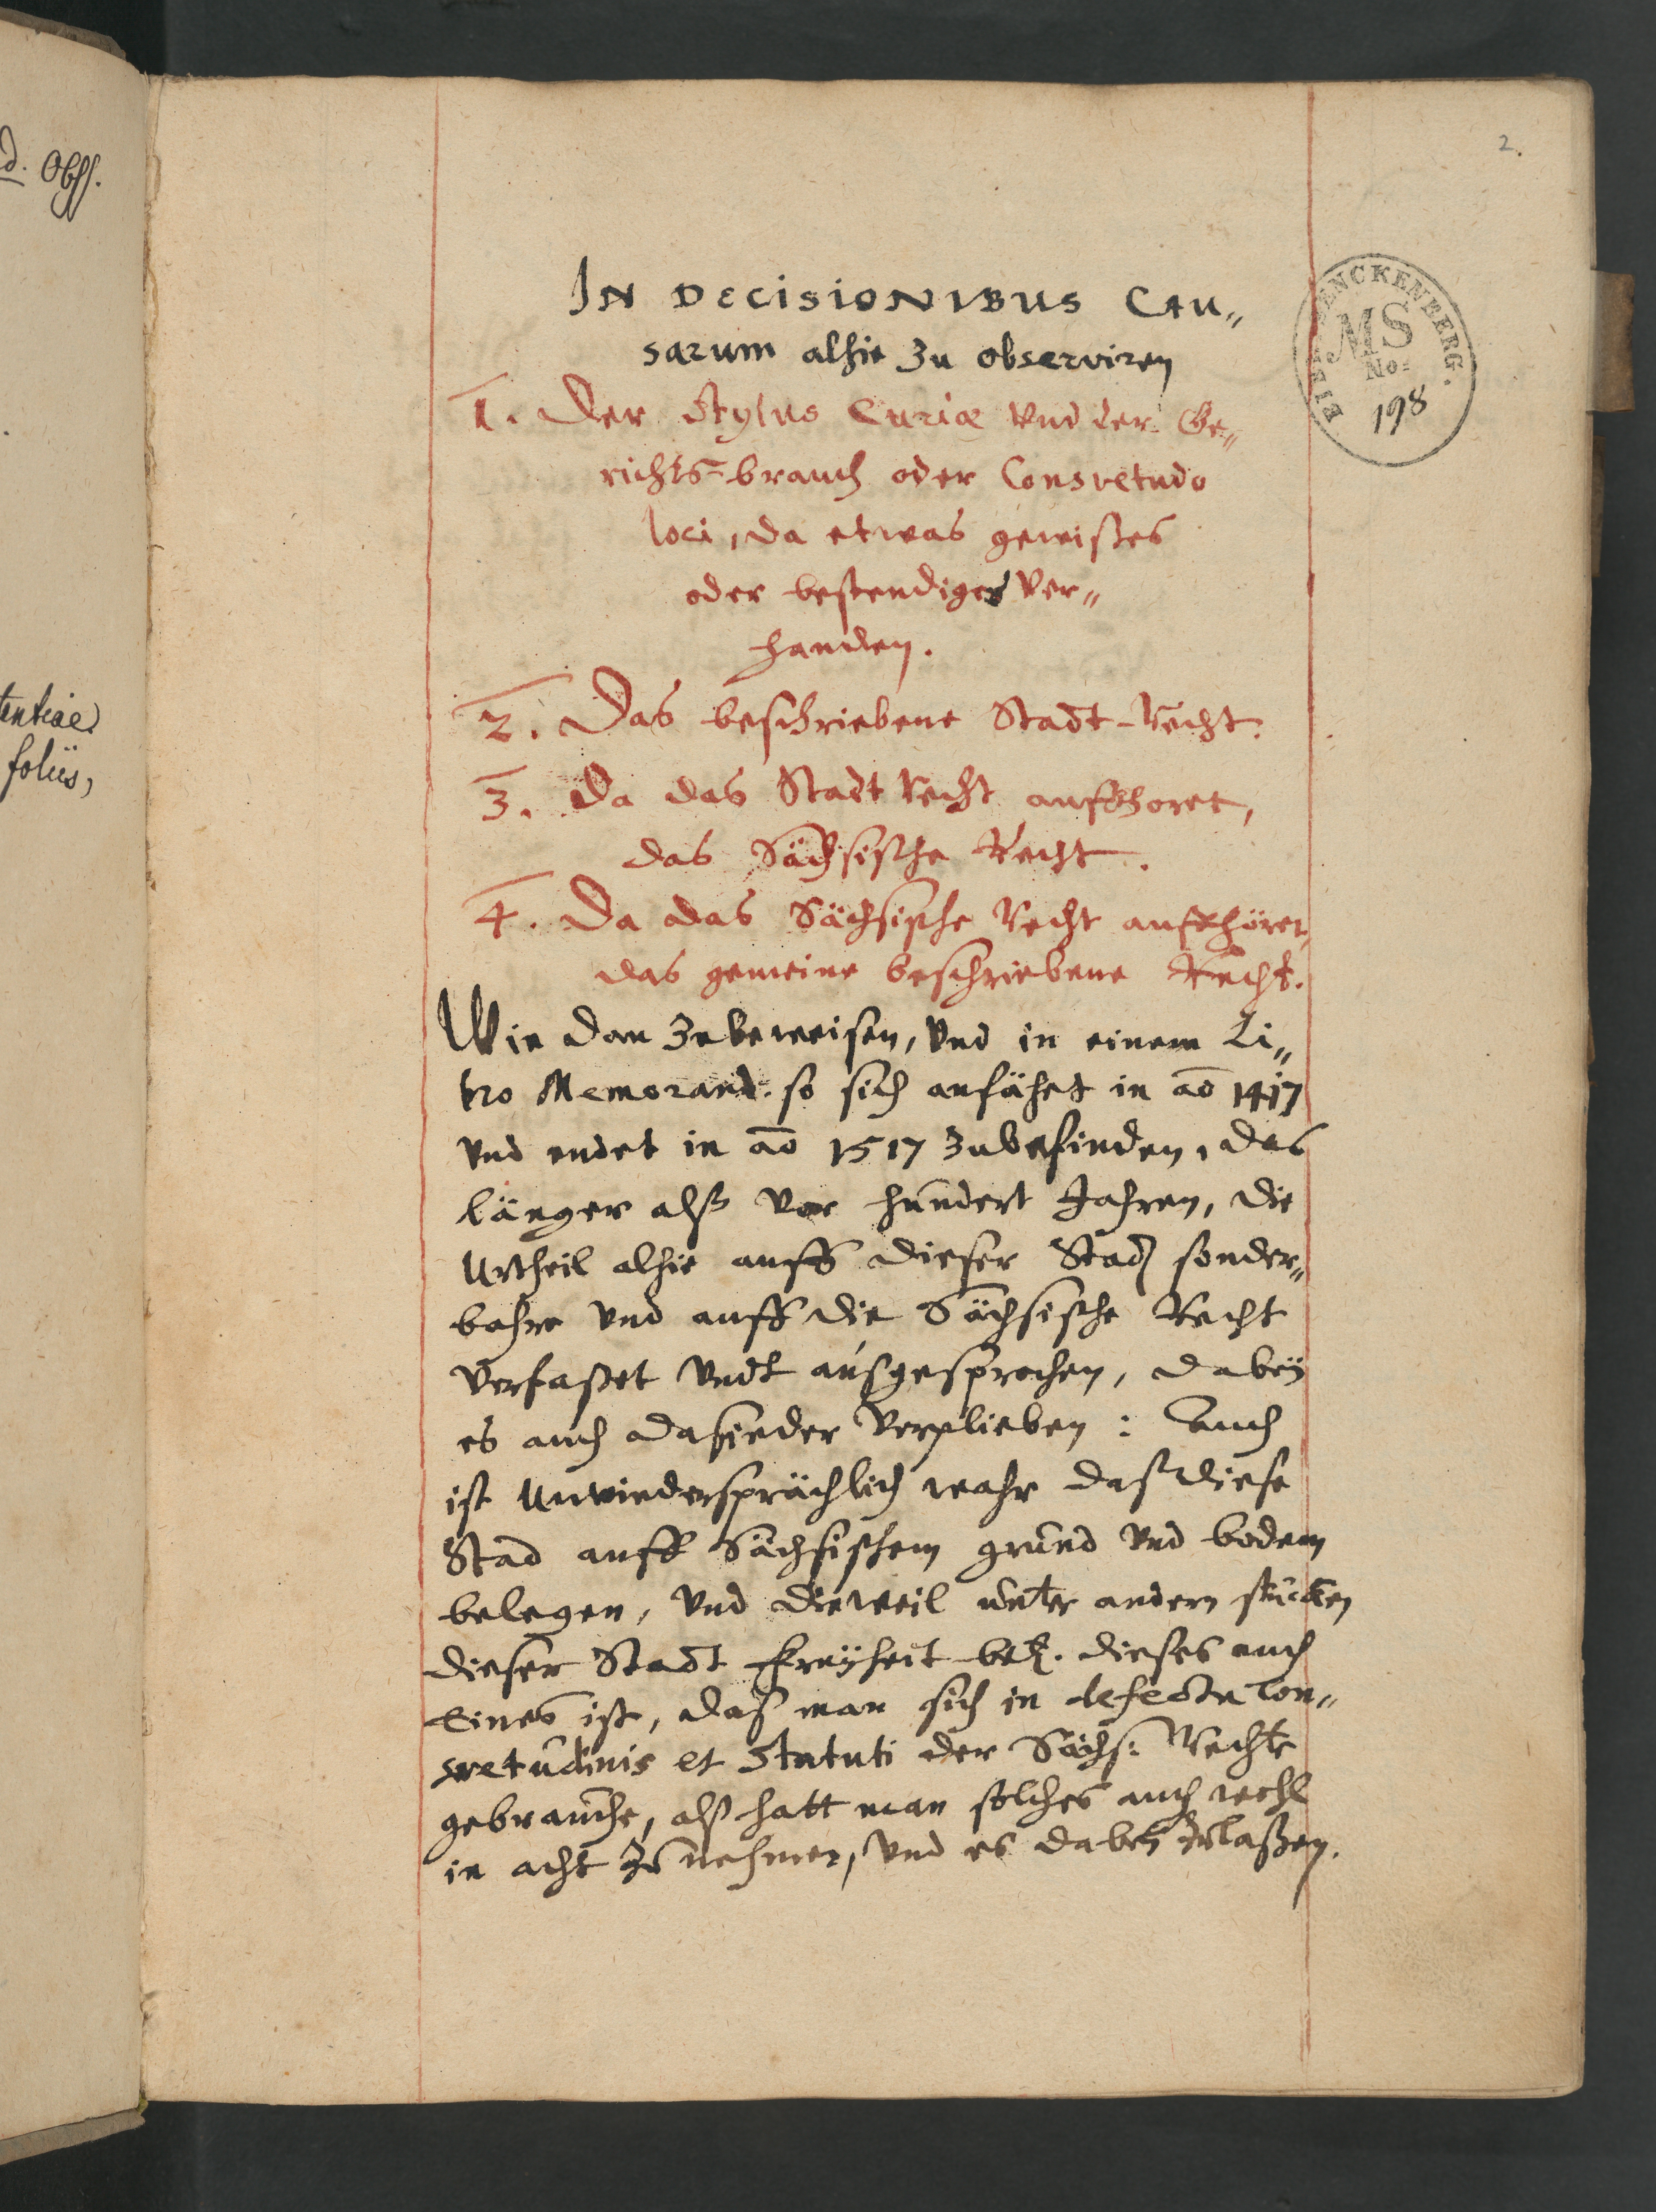 d. Obss.
tentiae
foliis,
2.
BIB. SENCKENBERG.
MS
No:
198
IN DECISIONIBUS CAU„
sarum alhie zu observiren
1. Der Stylus Curiæ vnd der Ge„
richts-brauch oder Consvetudo
loci, da etwas gewißes
oder bestendiges ver„
handen.
2. Das beschriebene Stadt-Recht.
3. Da das Stadt Recht auffhoret,
das Sächsische Recht.
4. Da das Sächsische Recht auffhöret,
das gemeine beschriebene Recht.
Wie dan zubeweisen, vnd in einem Li„
bro Memorand. so sich anfähet in ao 1417
vnd endet in ao 1517 zubefinden, das
länger alß vor hundert Jahren, die
Urtheil alhie auff dieser Stad sonder„
bahre vnd auff die Sächsische Recht
verfaßet vndt außgesprochen, dabey
es auch dasieder verplieben: Auch
ist unwiedersprächlich wahr daß diese
Stad auff Sächsischem grund vnd bodem
belegen, vnd dieweil unter andern stücken
dieser Stadt Freyheit dieses auch
Eines ist, daß man sich in defectu Con„
svetudinis et Statuti der Sächs: Rechte
gebrauche, alß hatt man solches auch wohl
in acht zu nehmen, vnd es dabey zulaßen.